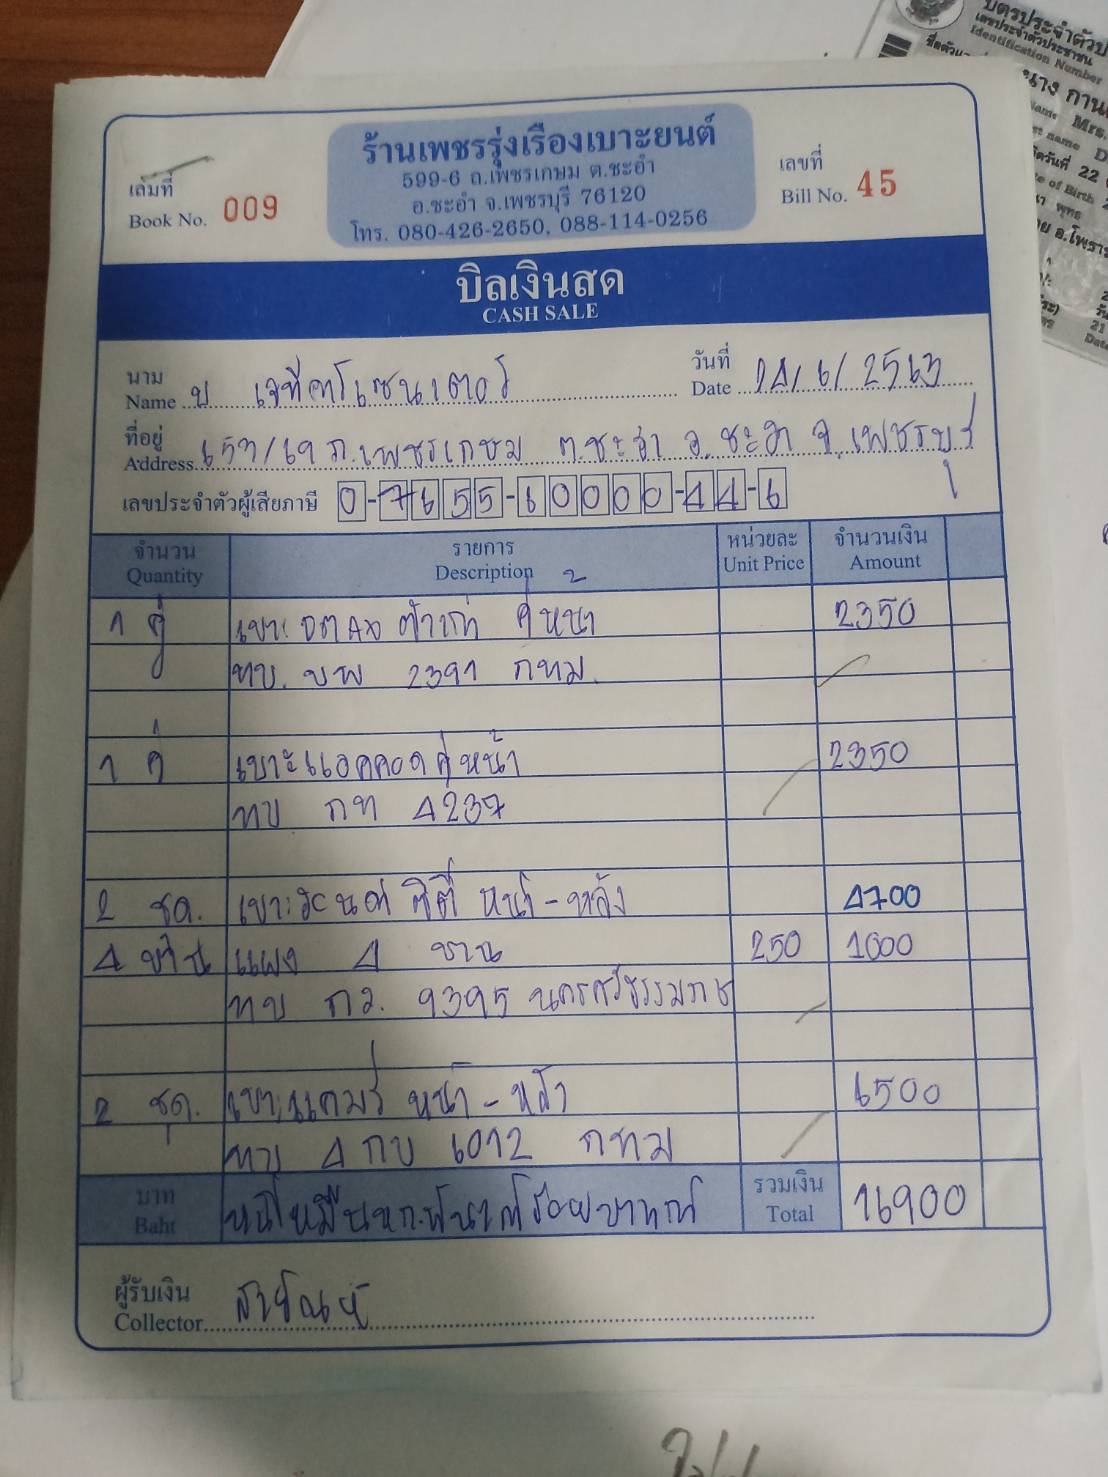 บัตรประจำตัวป
เลขประจำตัวประชาชน
Identification Number
นาง กาน
Mrs.
22
of Birth
อ.โพธา
21
ร้านเพชรรุ่งเรืองเบาะยนต์
599-6 ถ.เพชรเกษม ต.ชะอำ
อ.ชะอำ จ.เพชรบุรี 76120
โทร. 080-426-2650, 088-114-0256
เล่มที่
Book No. 009
เลขที่
Bill No. 45
บิลเงินสด
CASH SALE
นาม
Name บ เจทีคาร์เซนเตอร์
วันที่
Date 14/6/2563
ที่อยู่
Address 657/69 ถ.เพชรเกษม ต.ชะอำ อ.ชะอำ จ.เพชรบุรี
เลขประจำตัวผู้เสียภาษี 0-7655-60000-44-6
จำนวน รายการ หน่วยละ จำนวนเงิน
Quantity Description Unit Price Amount
1 คู่ คู่หน้า 2350
ทบ. 2391 กทม.
1 คู่ เบาะแอคคอดคู่หน้า 2350
ทบ กท 4237
2 ชด. ซิตี้ หน้า-หลัง 4700
4 บาน แผง 4 บาน 250 1000
ทบ กว. 9395 นครศรีธรรมราช
2 ชุด. เบาะแคมรี่ หน้า-หลัง 6500
ทบ 4 กบ 6012 กทม
บาท หนึ่งหมื่นหกพันเก้าร้อยบาท รวมเงิน 16900
Baht Total
ผู้รับเงิน
Collector